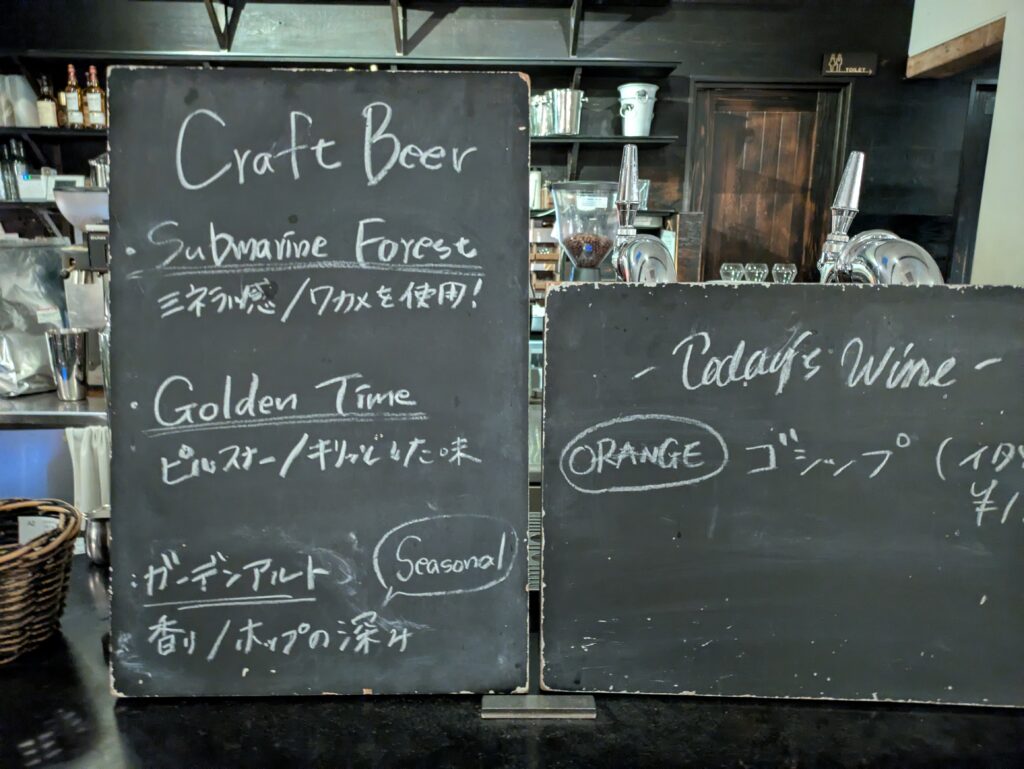 Craft Beer
・Submarine Forest
ミネラル感/ワカメを使用!
・Golden Time
ピルスナー/キリッとした味
Seasonal
・ガーデンアルト
香り/ホップの深み
- Today's Wine -
ORANGE ゴシップ (イタ
¥1
TOILET